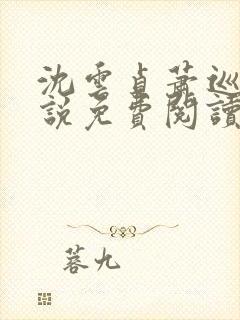 沈雲貞蕭巡
說免費閱讀
蓉九